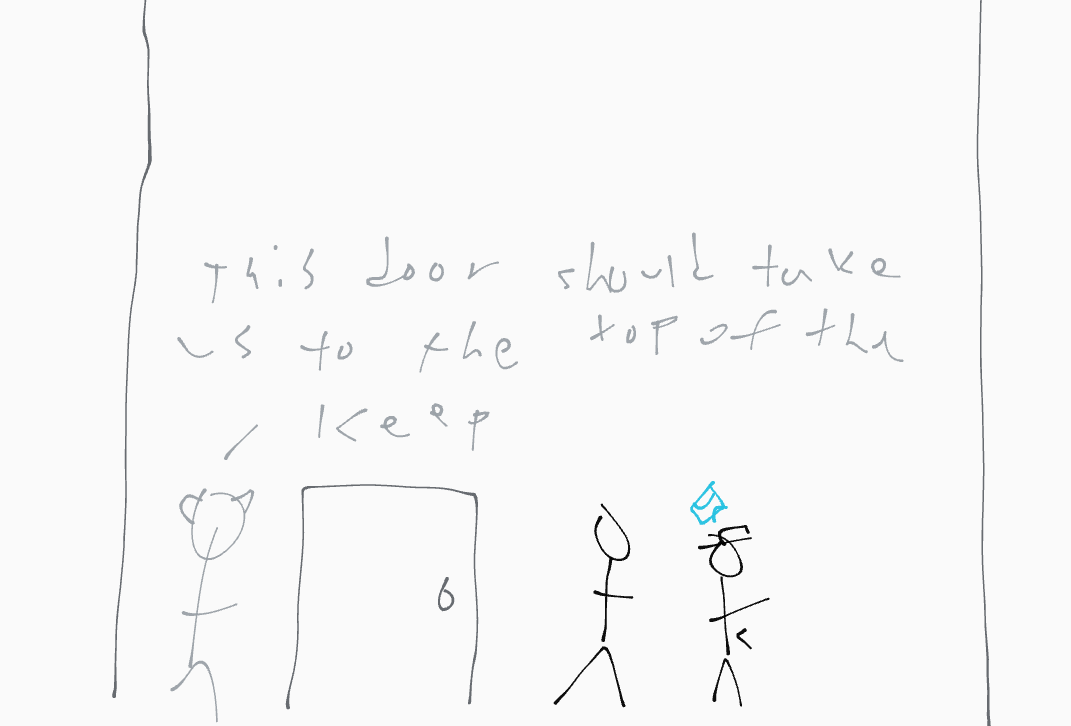 This door should take
us to the top of the
keep